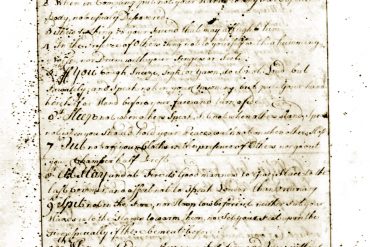 2 When in Company put not your Hands to any Part of the
Body, not usually Discovered
3 Shew Nothing to your Friend that may affright him
4 In the Presence of Others Sing not to yourself with a humming
Noise, nor Drum with your Fingers or Feet
5 If You Cough, Sneeze, Sigh, or Yawn, do it not Loud but
Privately; and Speak not in your Yawning, but put Your hand
before your face and turn aside
6 Sleep not when others Speak, Sit not when others stand, Speak
not when you Should hold your Peace, walk not on when others Stop
7 Put not off your Cloths in the presence of Others, nor go out
your Chamber half Drest
8 At Play and at Fire its Good manners to Give Place to the
last Commer, and affect not to Speak Louder than ordinary
9 Spit not in the Fire, nor Stoop low before it neither Put your
Hands into the Flames to warm them, nor Set your Feet upon the
Fire especially if there be meat before it